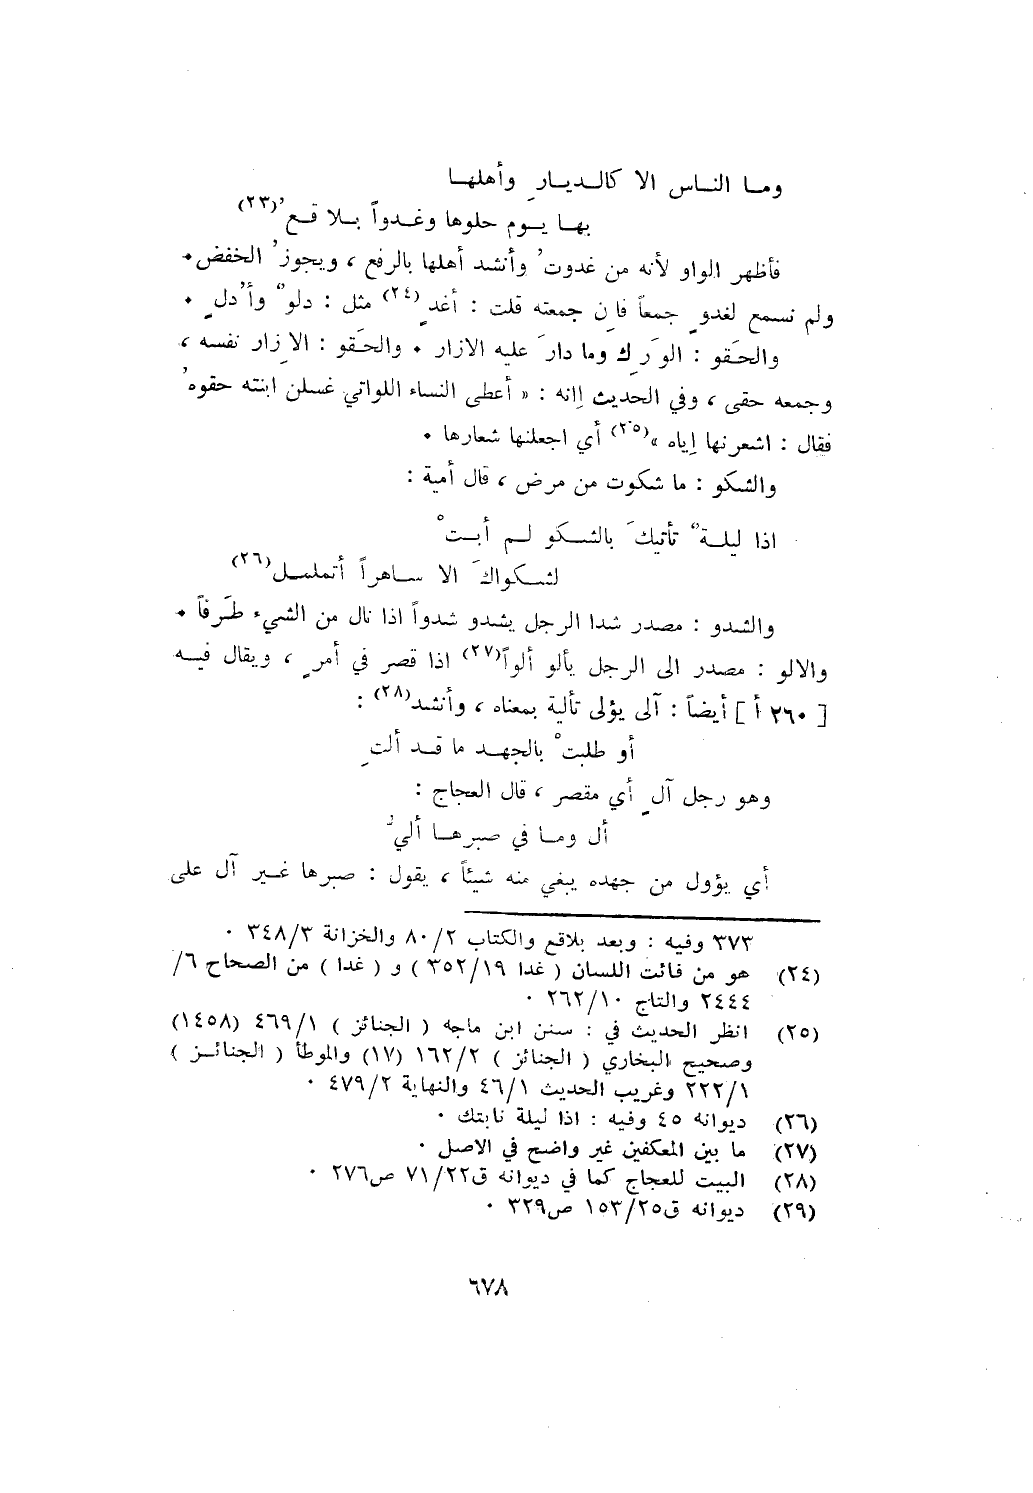 وما الناس الا كالديارِ وأهلها
بها يوم حلوها وغدواً بلا قعُ(٢٣)
فأظهر الواو لأنه من غدوتُ وأنشد أهلها بالرفع ، ويجوزُ الخفض .
ولم نسمع لغدوٍ جمعاً فاِن جمعته قلت : أغدٍ(٢٤) مثل : دلوٌ وأُدلٍ .
والحَقو : الوَرِك وما دارَ عليه الازار . والحَقو : الاِزار نفسه ،
وجمعه حقى ، وفي الحديث اِانه : « أعطى النساء اللواتي غسلن ابنته حقوهُ
فقال : اشعرنها إياه »(٢٥) أي اجعلنها شعارها .
والشكو : ما شكوت من مرض ، قال أمية :
اذا ليلةٌ تأتيكَ بالشكو لم أبتْ
لشكواكَ الا ساهراً أتململ(٢٦)
والشدو : مصدر شدا الرجل يشدو شدواً اذا نال من الشيء طَرفاً .
والالو : مصدر الى الرجل يألو ألواً(٢٧) اذا قصر في أمرٍ ، ويقال فيه
[ ٢٦٠ أ ] أيضاً : آلى يؤلى تألية بمعناه ، وأنشد(٢٨) :
أو طلبتْ بالجهد ما قد ألتِ
وهو رجل آلٍ أي مقصر ، قال العجاج :
أل وما في صبرها أليُّ
أي يؤول من جهده يبغي منه شيئاً ، يقول : صبرها غير آل على
٣٧٣ وفيه : وبعد بلاقع والكتاب ٨٠/٢ والخزانة ٣٤٨/٣ .
(٢٤) هو من فائت اللسان ( غدا ٣٥٢/١٩ ) و ( غدا ) من الصحاح ٦/
٢٤٤٤ والتاج ٢٦٢/١٠ .
(٢٥) انظر الحديث في : سنن ابن ماجه ( الجنائز ) ٤٦٩/١ (١٤٥٨)
وصحيح البخاري ( الجنائز ) ١٦٢/٢ (١٧) والموطأ ( الجنائز )
٢٢٢/١ وغريب الحديث ٤٦/١ والنهاية ٤٧٩/٢ .
(٢٦) ديوانه ٤٥ وفيه : اذا ليلة نابتك .
(٢٧) ما بين المعكفين غير واضح في الاصل .
(٢٨) البيت للعجاج كما في ديوانه ق٧١/٢٢ ص٢٧٦ .
(٢٩) ديوانه ق١٥٣/٢٥ ص٣٢٩ .
٦٧٨